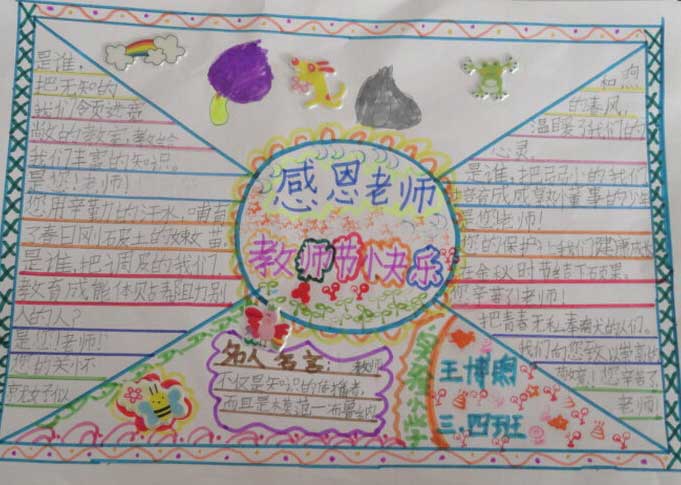 是谁，
把无知的
我们领进宽
敞的教室，教给
我们丰富的知识。
是您！老师！
您用辛勤的汗水，哺育
了春日刚破土的嫩苗。
是谁把调皮的我们，
教育成能体贴帮助别
人的人？
是您！老师！
您的关怀
就好似
感恩老师
教师节快乐
和煦
的春风，
温暖了我们的
心灵。
是谁，把
是您老师！
您的保护让我们健康成长
在金秋时节结下硕果。
您辛苦了老师！
把青春无私奉
我们向您致以崇高的
敬意！您辛苦了
老师！
名人名言：教师
不仅是知识的传播者，
而且是模范
实验小学
王博
三.四班